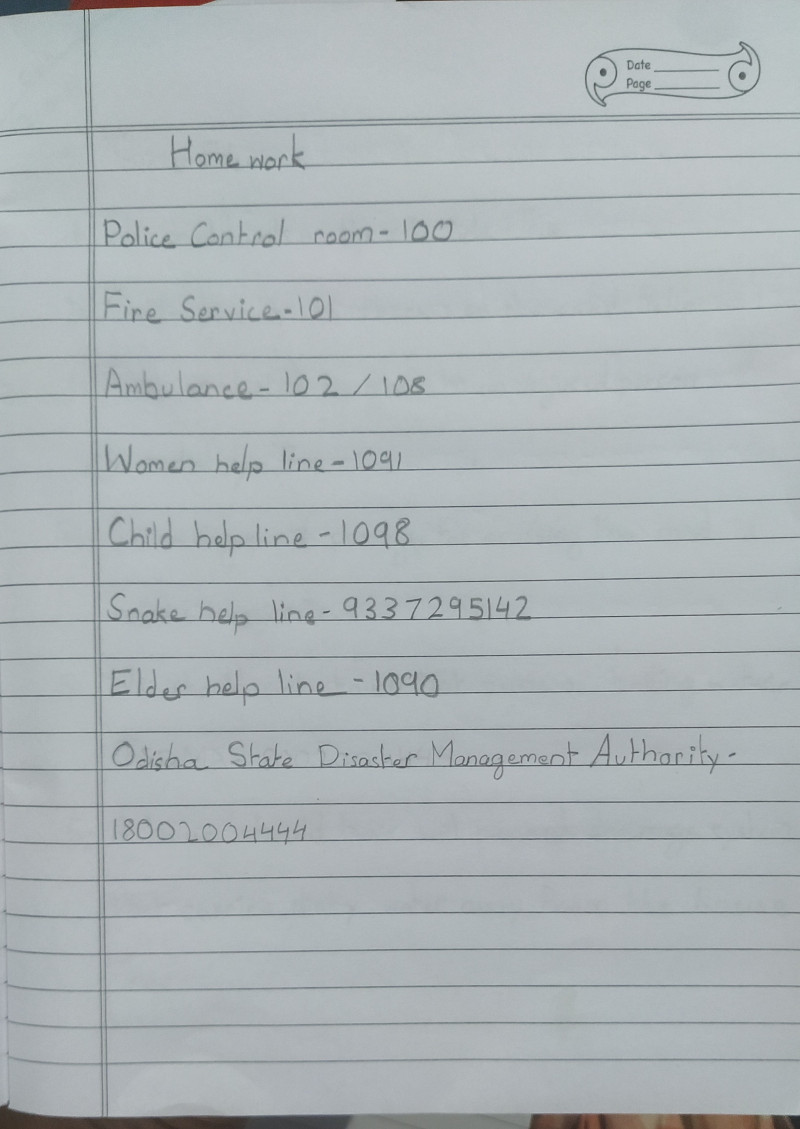 Date
Page
Home work
Police Control room - 100
Fire Service - 101
Ambulance - 102 / 108
Women help line - 1091
Child help line - 1098
Snake help line - 9337295142
Elder help line - 1090
Odisha State Disaster Management Authority -
18002004444